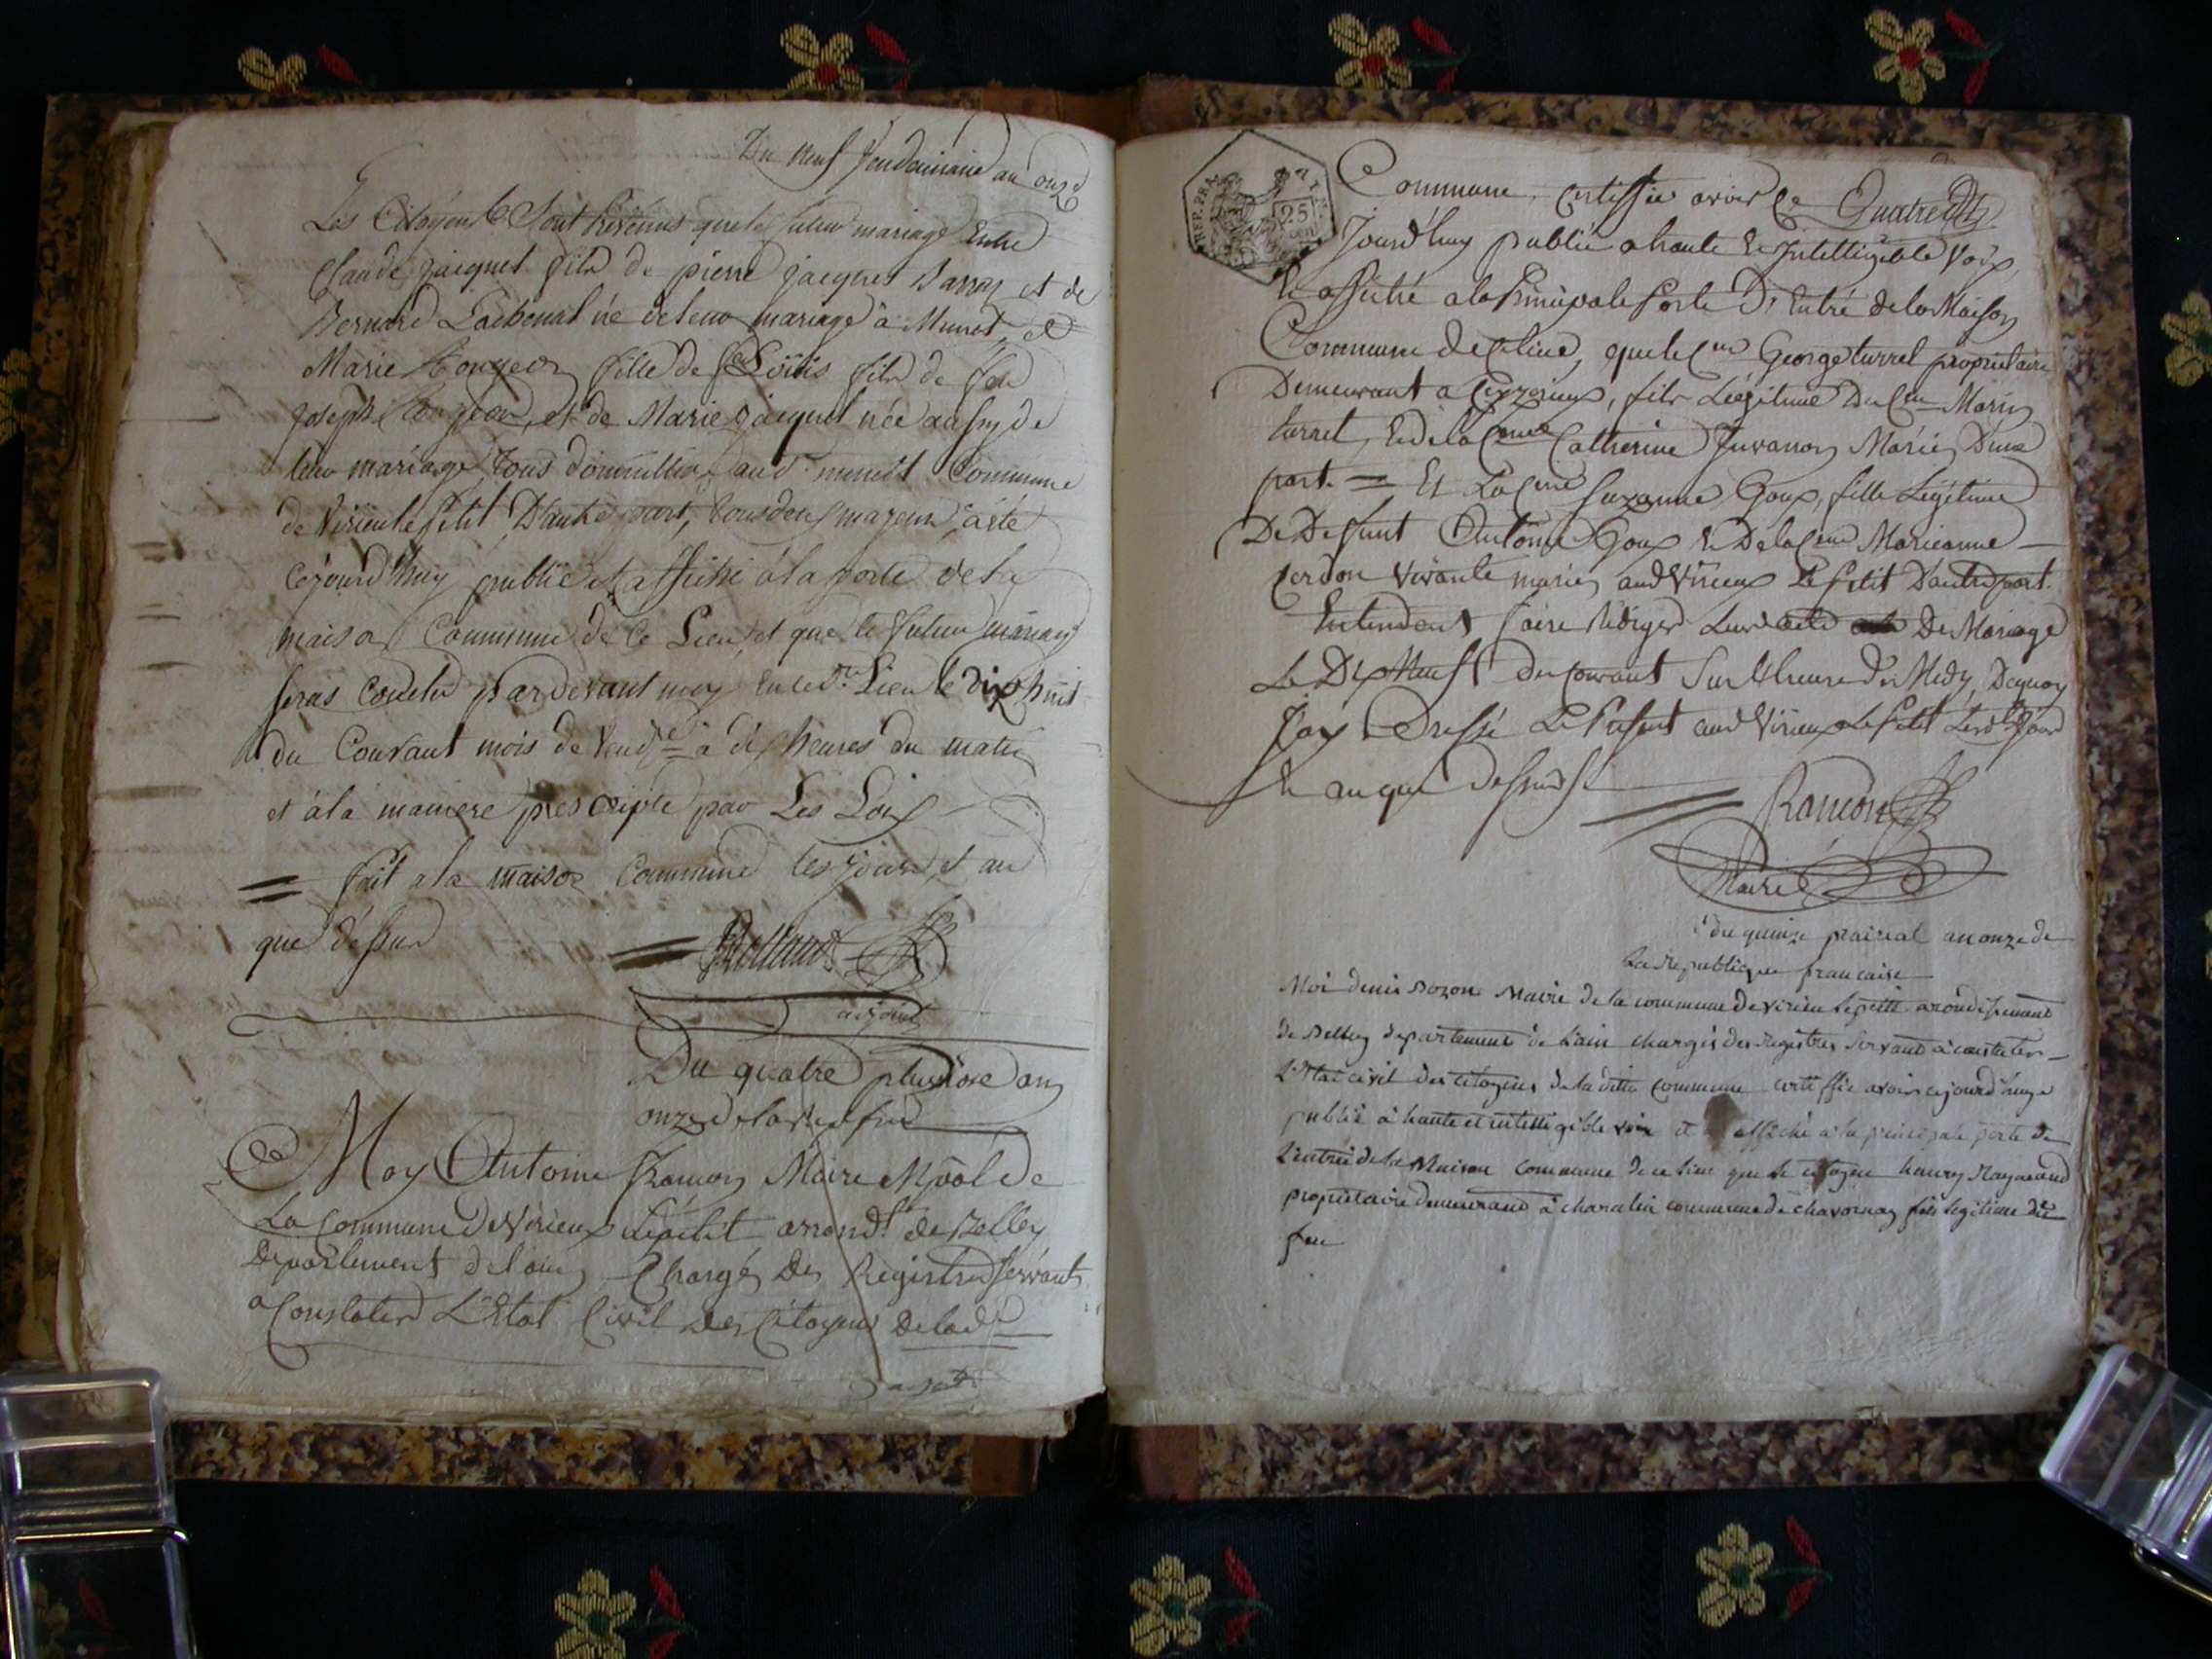 Du neuf Vendemiaire an onze
Les Citoyens Sont prévenus que le futur mariage Entre
Claude jacquet fils de pierre jacquet Barraz et de
Bernard né de leur mariage à Munet, et
Marie fille de feu Loüis fils de feu
joseph et de Marie jacquet née aussy de
leur mariage, tous domicilliés aud.t munet Commune
de Virieu le petit D'autre part, tous deux majeurs, a été
Cejourd'huy publié et affiché à la porte de la
maison Commune de Ce Lieu, et que le futur mariage
seras Conclu pardevant moy en ced.t Lieu le dix huit
du Courant mois de Vend.re à dix heures du matin
et à la maniere prescripte par Les Loix
= fait a la maison Commune les jour et an
que déssus
= Rolland
adjoint
Du quatre pluviose an
onze de la Rep. fra.
Moy Antoine Ramon Maire Mpâl de
La Commune de Virieux Lepetit arrond.t de Belley
Departement de l'ain Chargé Des Registres servants
a Constater L'Etat Civil Des Citoyens De lad.e
REP. FRA.
25
cen
Commune, Certiffie avoir Ce Quatre dit
Jourd'huy publié a haute & Intelligible Voix,
& affiché a la Principale Porte D'Entré de la Maison
Commune de Celieu, que le C.en George turrel propriétaire
Demeurant a Ceyzerieux, fils Légitime Du C.en Marin
turrel, & de la C.enne Catherine Juvanon Mariés D'une
part. = Et La C.enne Suzanne Goux, fille Légitime
De Defunt Antoine Goux & De la C.enne Marieanne
Cerdon Vivante mariés aud Virieux Le Petit D'autre part.
Entendent faire Rédiger Leur acte De Mariage
Le Dix Neuf du Courant Sur L'heure du Midy, Dequoy
J'ay Dressé Le Present aud Virieux Le Petit Lesd Jour
& an que dessus
= Ramon
Maire
du quinze prairial an onze de
La republique francaise
Moi denis Bozon Maire de la commune de virieu lepetit arondissement
de Belley departement de L'ain chargés des registres servant à constater
L'Etat civil des citoyens de la ditte commune certiffie avoir cejourd'huy
publié à haute et intelligible voix et affiché a la principale porte de
L'entrée de la Maison commune de ce lieu que le citoyen henry Raymond
propriétaire demeurant à charalin commune de chavornay fils legitime de
feu